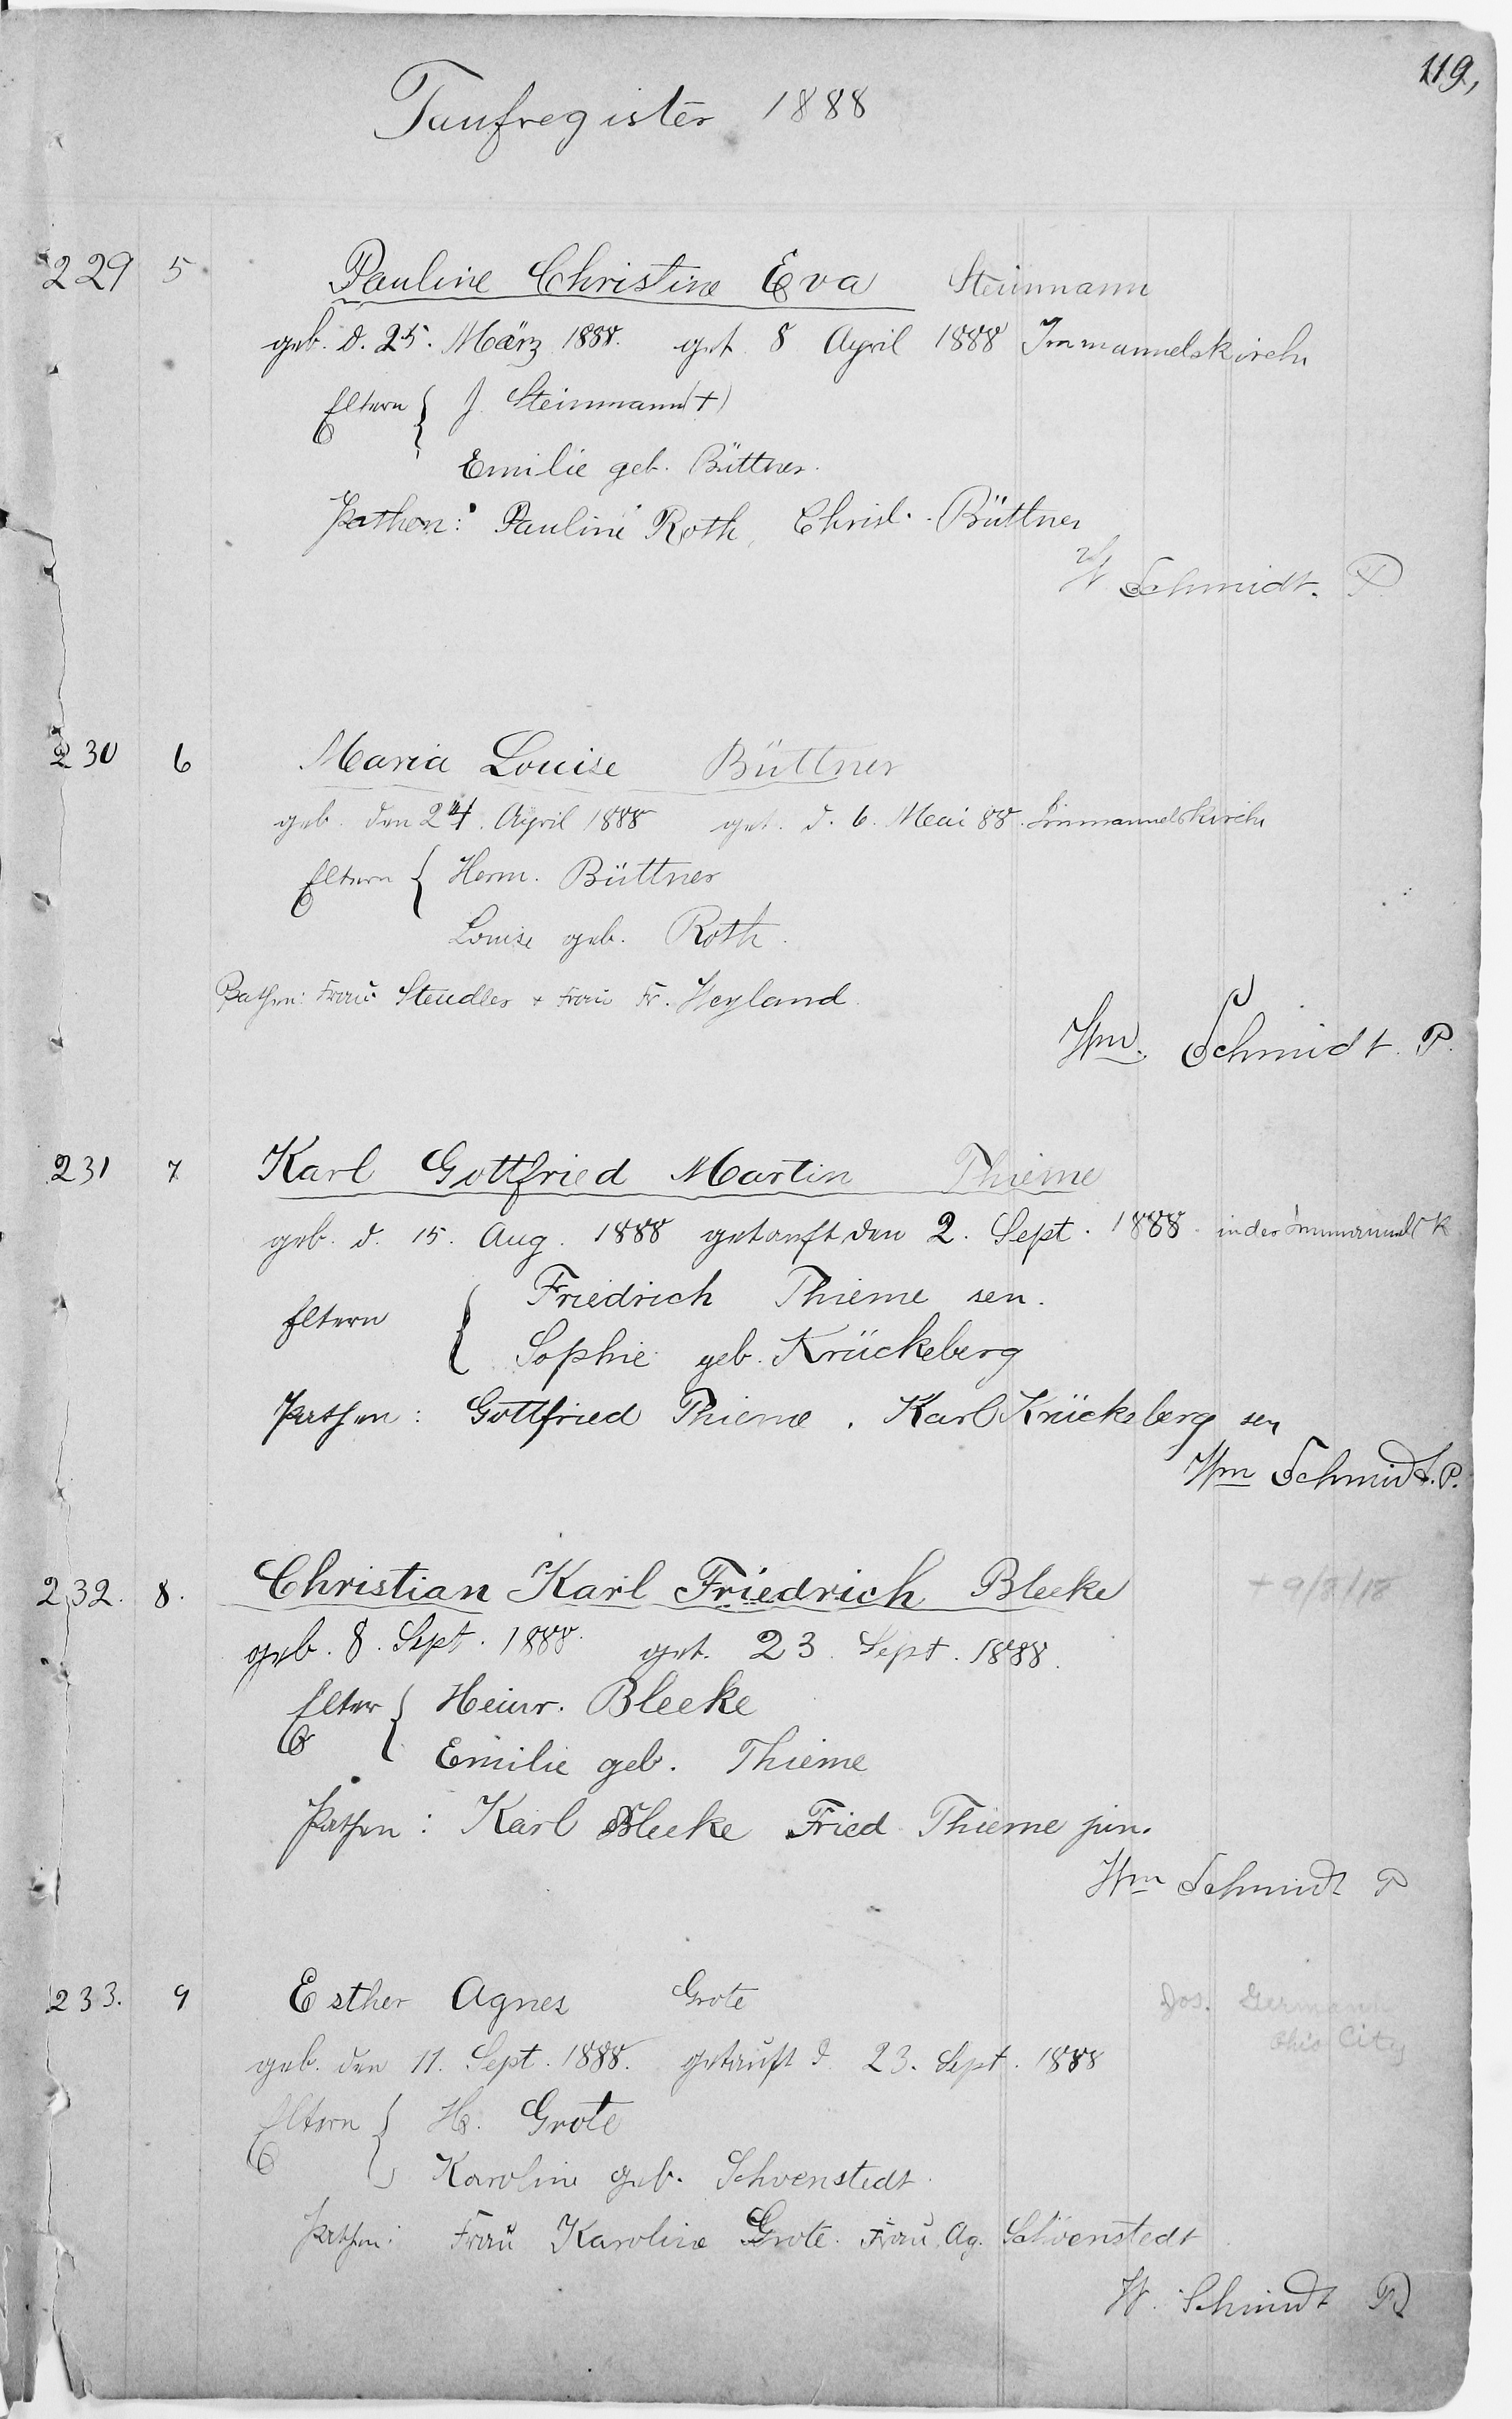 119,
Taufregister 1888
229 5 Pauline Christine Eva Steinmann
geb. d. 25. März 1888. get. 8 April 1888 Immanuelskirche
Eltern { J. Steinmann (+)
Emilie geb. Büttner.
Pathen: Pauline Roth, Christ. Büttner
W Schmidt. P.
230 6 Maria Louise Büttner
geb. den 24. April 1888 get. d. 6. Mai 88. Immanuelskirche
Eltern { Herm. Büttner
Louise geb. Roth.
Pathen: Frau Steudler + Frau Fr. Weyland.
Wm. Schmidt. P.
231 7 Karl Gottfried Martin Thieme
geb. d. 15. Aug. 1888 getauft den 2. Sept. 1888. in der Immanuels K
Eltern { Friedrich Thieme sen.
Sophie geb. Krückeberg
Pathen: Gottfried Thieme. Karl Krückeberg sen
Wm Schmidt. P.
232. 8. Christian Karl Friedrich Bleeke + 9/8/18
geb. 8. Sept. 1888. get. 23. Sept. 1888.
Elter { Heinr. Bleeke
Emilie geb. Thieme
Pathen: Karl Bleeke Fried Thieme jun.
Wm Schmidt P
233. 9 Esther Agnes Grote Jos. Germann
Ohio City
geb. den 11. Sept. 1888. getauft d. 23. Sept. 1888
Eltern { H. Grote
Karoline geb. Schvenstedt.
Pathen: Frau Karoline Grote. Frau Ag. Schvenstedt
W. Schmidt P.